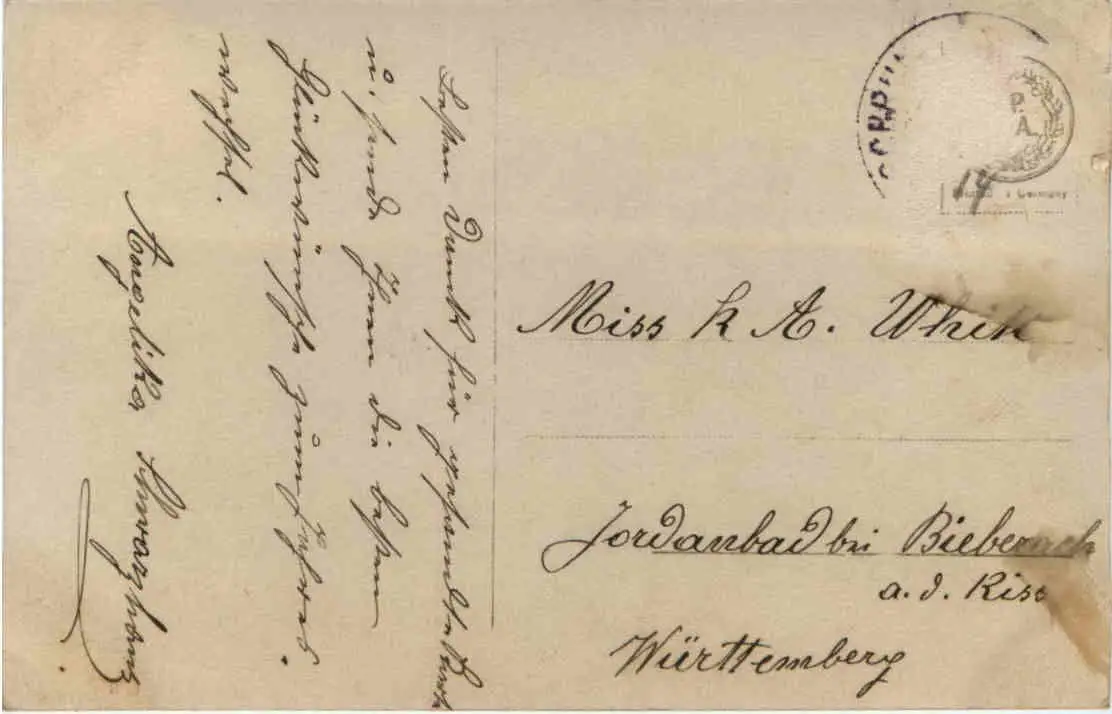 Besten Dank für gesandte Karte
u. sende Ihnen die besten
Glückwünsche zum Jahres-
wechsel.
Angelika Schwarzhanz
P.
A.
14
Germany
Miss K A. Whit
Jordanbad bei Bieberach
a. d. Riss
Württemberg